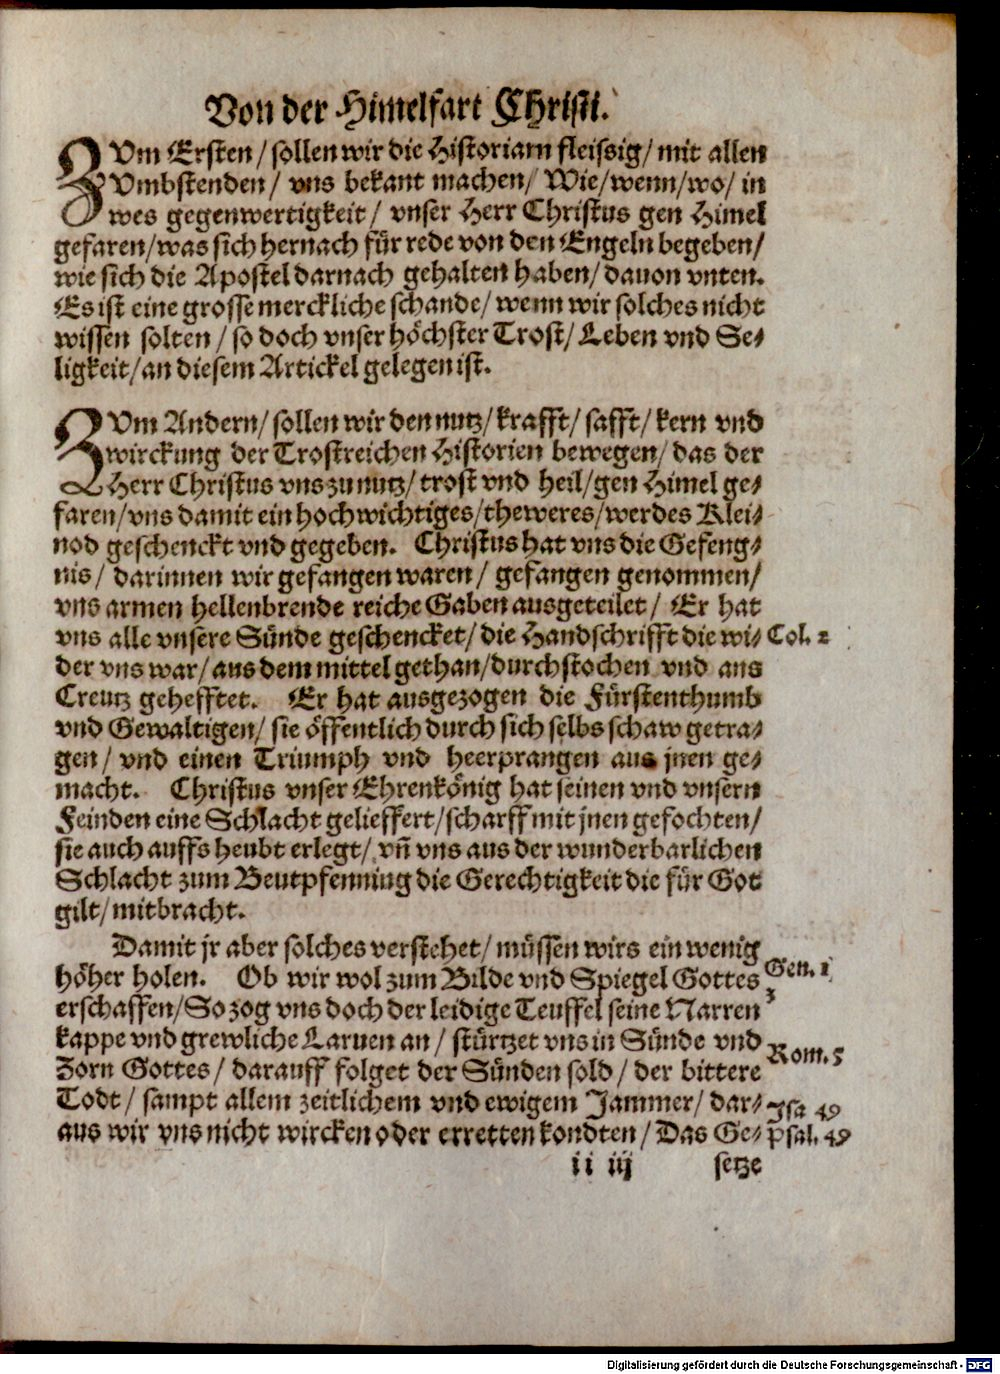 Von der Himelfart Christi.
ZVm Ersten / sollen wir die Historiam fleissig / mit allen
Vmbstenden / vns bekant machen / Wie / wenn / wo / in
wes gegenwertigkeit / vnser Herr Christus gen Himel
gefaren / was sich hernach für rede von den Engeln begeben /
wie sich die Apostel darnach gehalten haben / dauon vnten.
Es ist eine grosse merckliche schande / wenn wir solches nicht
wissen solten / so doch vnser höchster Trost / Leben vnd Se-
ligkeit / an diesem Artickel gelegen ist.
ZVm Andern / sollen wir den nutz / krafft / safft / kern vnd
wirckung der Trostreichen Historien bewegen / das der
Herr Christus vns zu nutz / trost vnd heil / gen Himel ge-
faren / vns damit ein hochwichtiges / theweres / werdes Klei-
nod geschenckt vnd gegeben. Christus hat vns die Gefeng-
nis / darinnen wir gefangen waren / gefangen genommen /
vns armen hellenbrende reiche Gaben ausgeteilet / Er hat
vns alle vnsere Sünde geschencket / die Handschrifft die wi- Col. 2
der vns war / aus dem mittel gethan / durchstochen vnd ans
Creutz gehefftet. Er hat ausgezogen die Fürstenthumb
vnd Gewaltigen / sie öffentlich durch sich selbs schaw getra-
gen / vnd einen Triumph vnd heerprangen aus jnen ge-
macht. Christus vnser Ehrenkönig hat seinen vnd vnsern
Feinden eine Schlacht gelieffert / scharff mit jnen gefochten /
sie auch auffs heubt erlegt / vñ vns aus der wunderbarlichen
Schlacht zum Beutpfenning die Gerechtigkeit die für Got
gilt / mitbracht.
Damit jr aber solches verstehet / müssen wirs ein wenig
höher holen. Ob wir wol zum Bilde vnd Spiegel Gottes Gen. 1
erschaffen / So zog vns doch der leidige Teuffel seine Narren 3
kappe vnd grewliche Laruen an / stürtzet vns in Sünde vnd
Zorn Gottes / darauff folget der Sünden sold / der bittere Rom. 5
Todt / sampt allem zeitlichem vnd ewigem Jammer / dar- Isa 49
aus wir vns nicht wircken oder erretten kondten / Das Ge- Psal. 49
ii iij setze
Digitalisierung gefördert durch die Deutsche Forschungsgemeinschaft - DFG